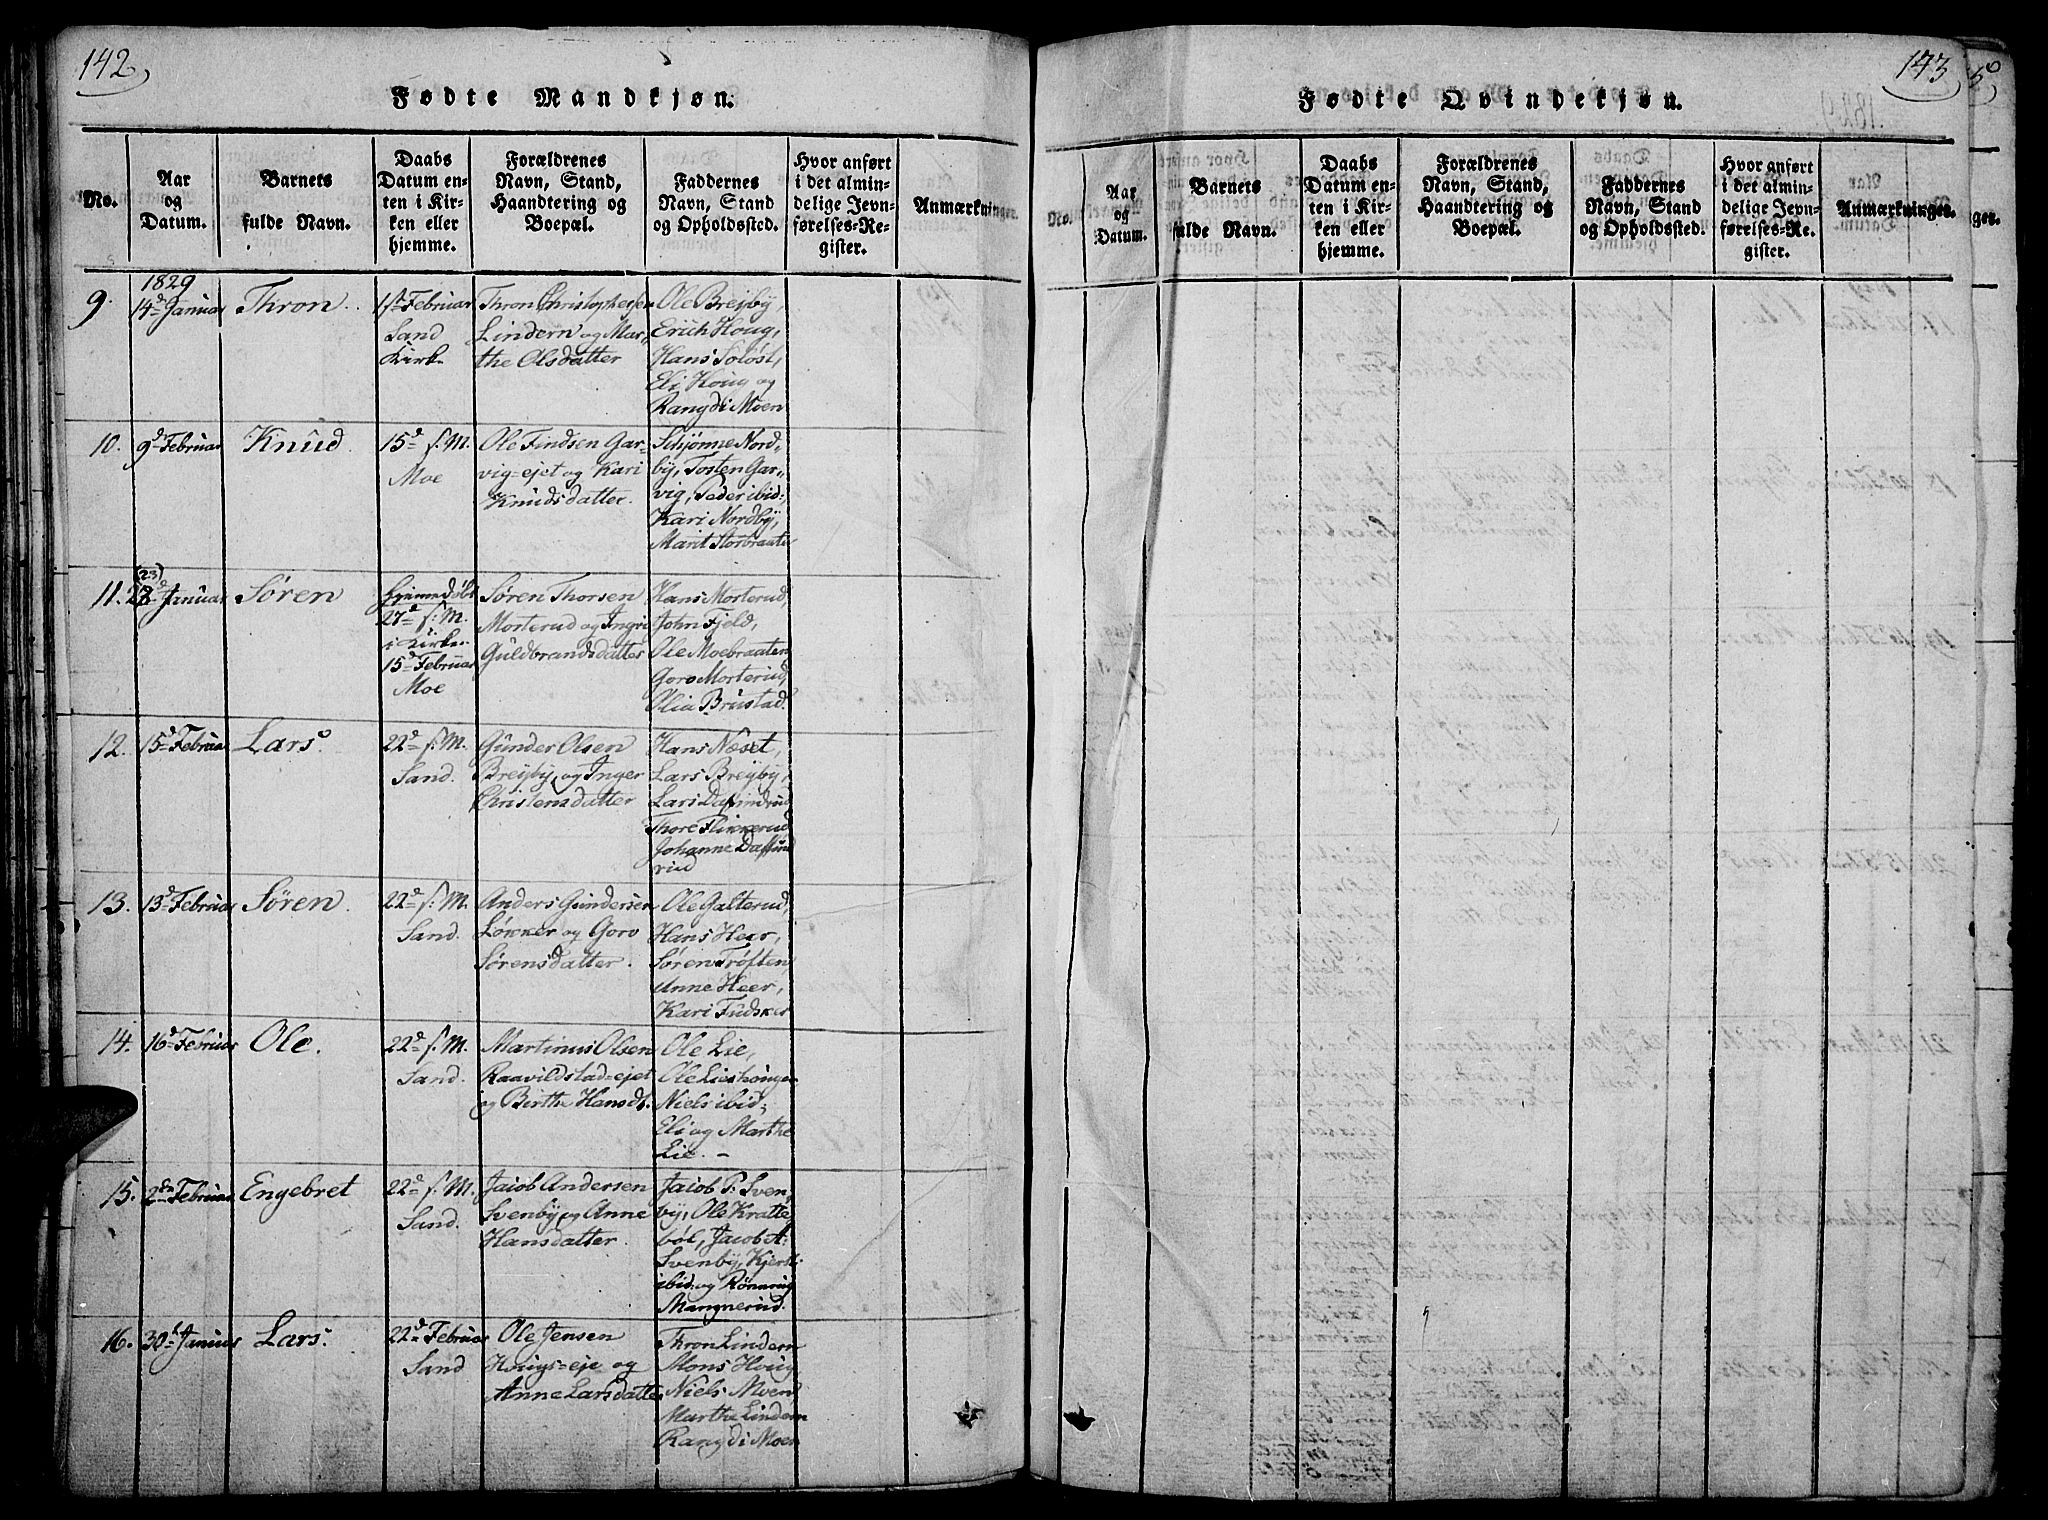 142
Fødte Mandkjøn.
No.
Aar
og
Datum.
Barnets
fulde Navn.
Daabs
Datum en-
ten i Kir-
ken eller
hjemme.
Forældrenes
Navn, Stand,
Haandtering og
Boepæl.
Faddernes
Navn, Stand
og Opholdssted.
Hvor anført
i det almin-
delige Jevn-
førelses-Re-
gister.
Anmærkninger.
1829
9.
14d Januar
Thron.
1st Februar
Sand
Kirke
Thron Christophersen
Lindern og Mar-
the Olsdatter
Ole Brejby,
Erich Houg,
Hans Soløst,
Eli Houg og
Rangdi Moen
10.
9d Februar
Knud.
15d f: M.
Moe
Ole Findsen Gar-
vig-ejet og Kari
Knudsdatter.
Schjønne Nord-
by, Tosten Gar-
vig, Peder ibid:,
Kari Nordby,
Marit Storbraate
11.
(23)
Januar
Søren
Hjemmedøbt
27d f: M.
i Kirke
15d Februar
Moe
Søren Thorsen
Morterud og Ingri
Guldbrandsdatter
Hans Morterud,
John Fjeld,
Ole Moebraaten
Goro Morterud,
Olia Brustad.
12.
15d Februar
Lars.
22d f: M.
Sand.
Gunder Olsen
Brejby og Inger
Christensdatter
Hans Næset,
Lars Brejby,
Thore Flikkerud
Johanne
rud
13.
13d Februar
Søren.
22d f: M.
Sand.
Anders Gundersen
Løkker og Goro
Sørensdatter.
Ole Galterud,
Hans Heer,
Søren Trøften,
Anne Heer,
Kari Fudsker
14.
16d Februar
Ole.
22d f: M.
Sand.
Martinus Olsen
Raavildstad-ejet
og Birthe Hansdt.
Ole Lie,
Niels ibid:
Eli og Marthe
Lie. –
15.
2den Februar
Engebret
22d f: M.
Sand.
Jacob Andersen
Svenby og Anne
Hansdatter.
Jacob P. Sven-
by, Ole Kratte-
bøl, Jacob A.
Svenby, Kjersti
ibid: og Rønnaug
Mangnerud.
16.
30d Januar
Lars.
22d Februar
Sand
Ole Jensen
Hougs-eje og
Anne Larsdatter
Thron Lindern
Mons Houg
Niels Moen
Marthe Lindern
Rangdi Moen
143
Fødte Qvindekjøn.
No.
Aar
og
Datum.
Barnets
fulde Navn.
Daabs
Datum en-
ten i Kir-
ken eller
hjemme.
Forældrenes
Navn, Stand,
Haandtering og
Boepæl.
Faddernes
Navn, Stand
og Opholdssted.
Hvor anført
i det almin-
delige Jevn-
førelses-Re-
gister.
Anmærkninger.